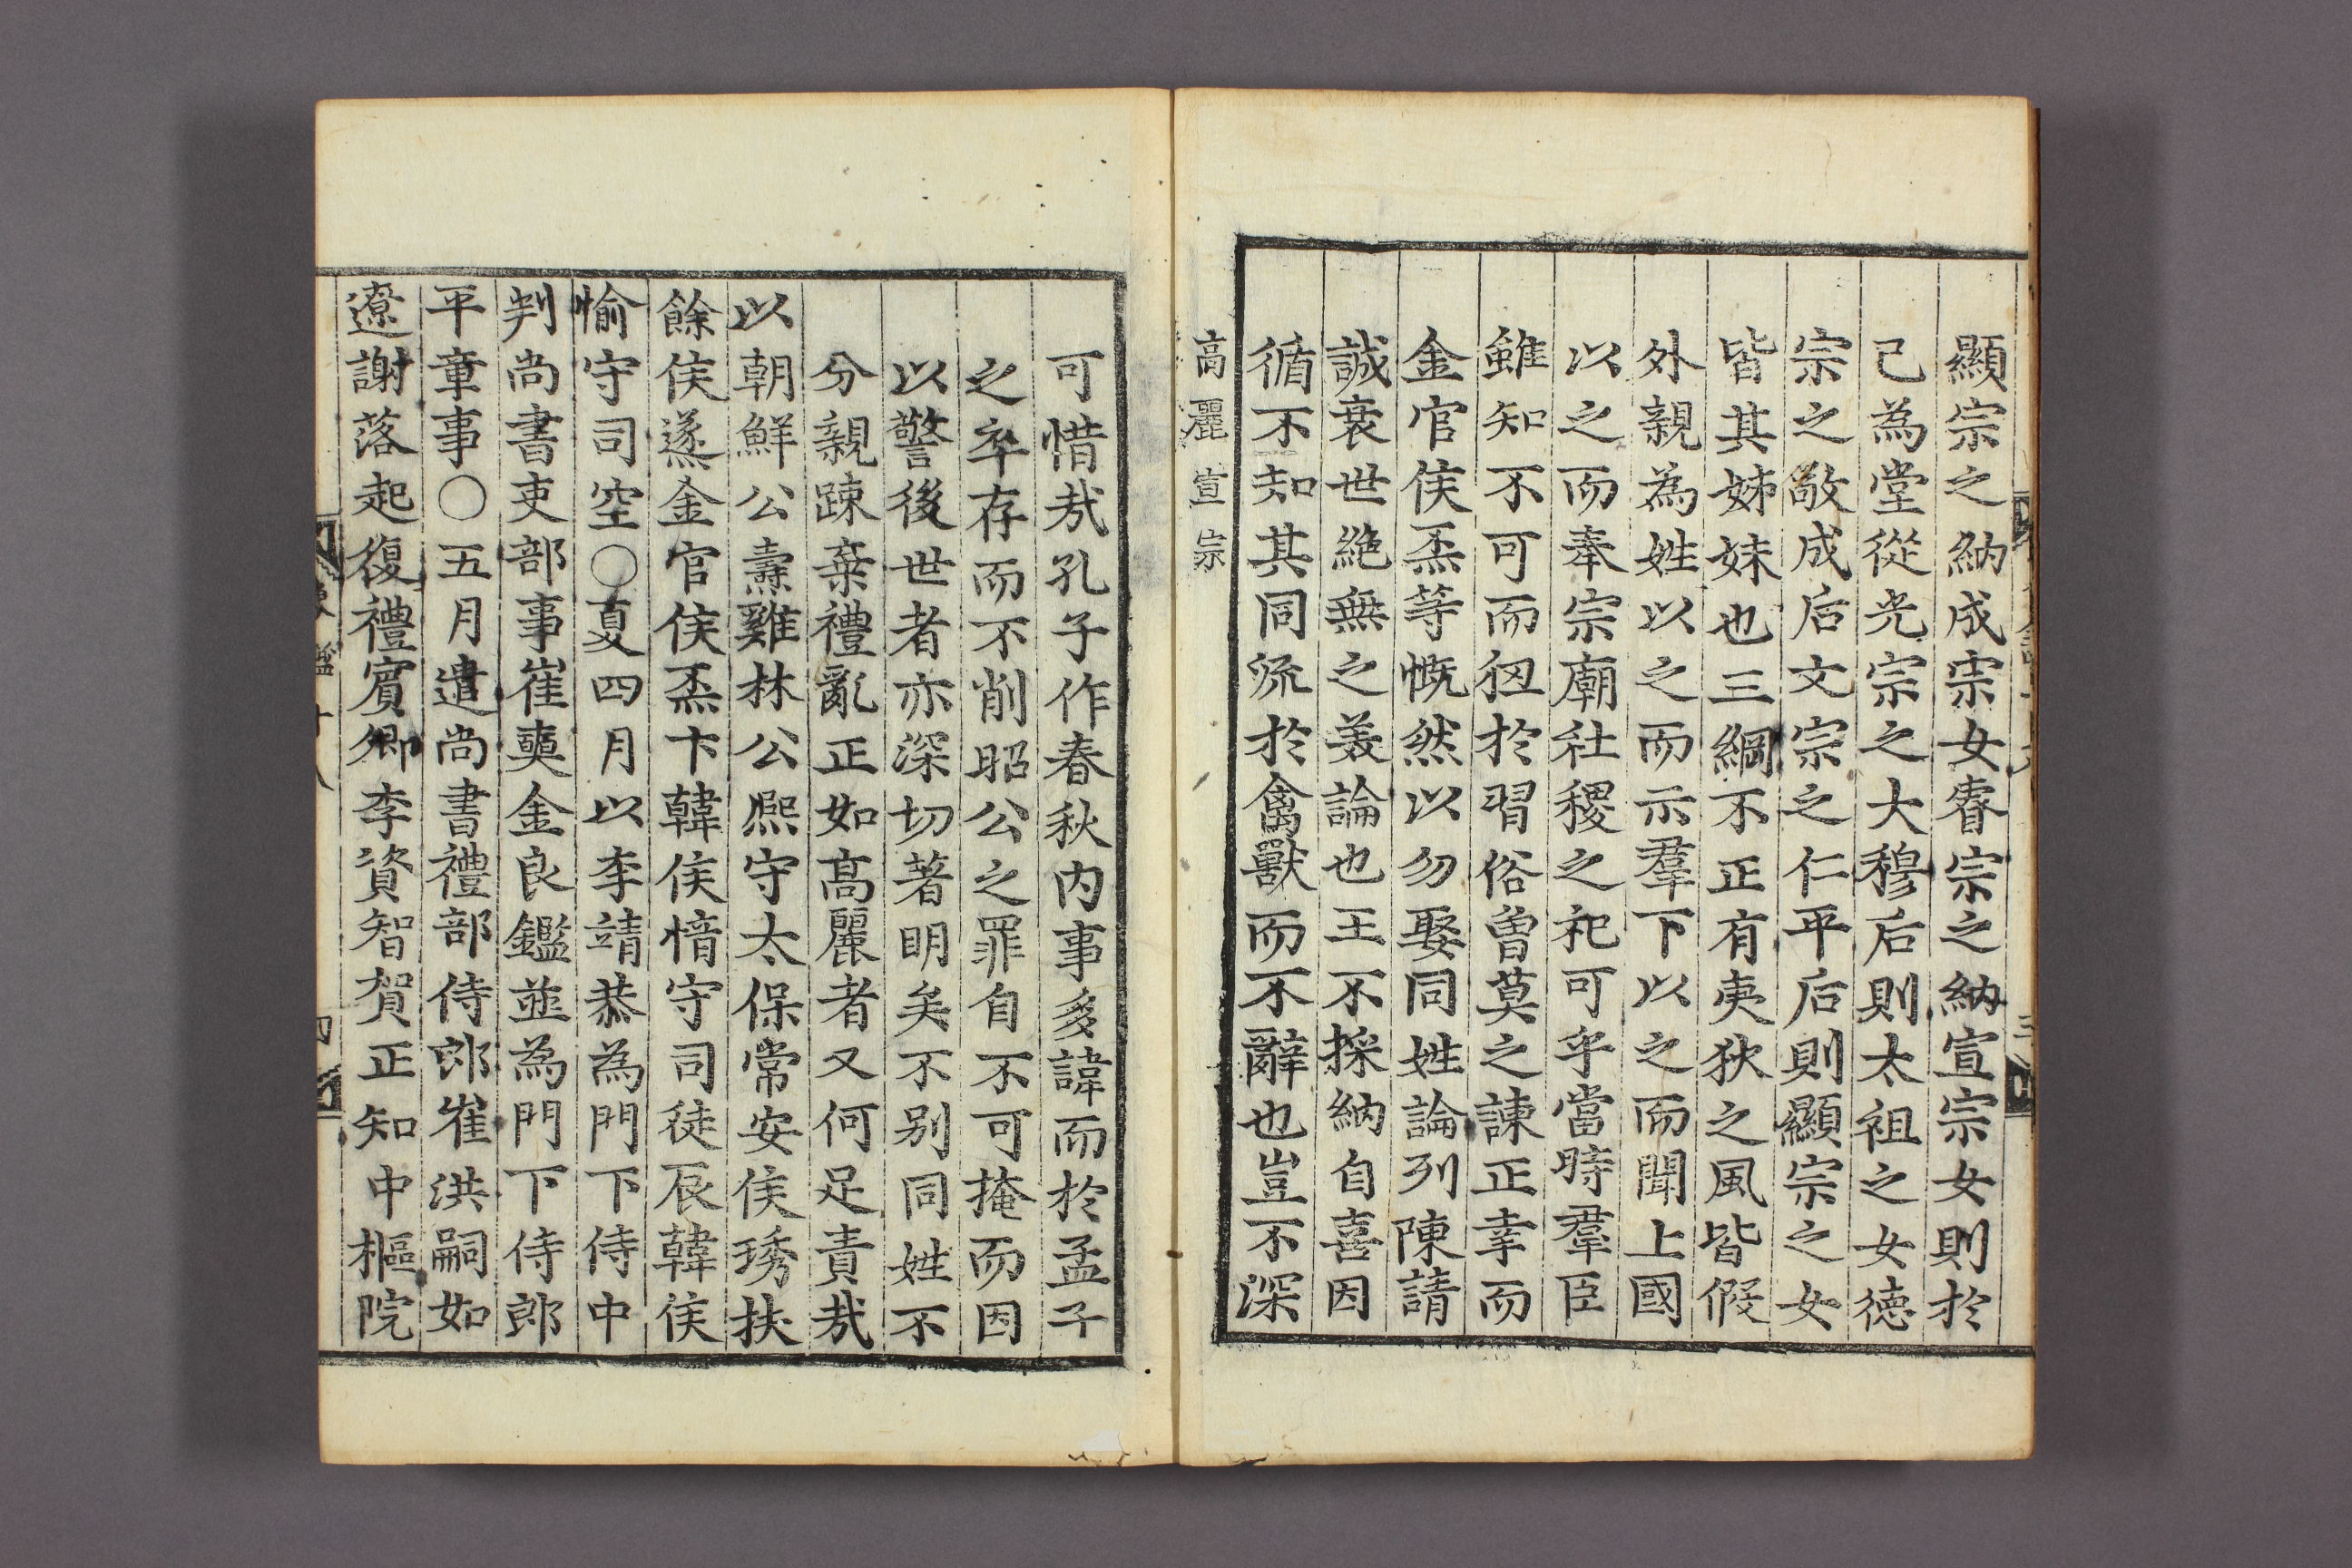 顯宗之納成宗女睿宗之納宣宗女則於
己為堂從光宗之大穆后則太祖之女德
宗之敬成后文宗之仁平后則顯宗之女
皆其姊妹也三綱不正有夷狄之風皆假
外親為姓以之而示羣下以之而聞上國
以之而奉宗廟社稷之祀可乎當時羣臣
雖知不可而狃於習俗曾莫之諫正幸而
金官侯㶨等慨然以勿娶同姓論列陳請
誠衰世絶無之羙論也王不採納自喜因
循不知其同流於禽獸而不辭也豈不深
高麗宣宗
可惜㢤孔子作春秋内事多諱而於孟子
之卒存而不削昭公之罪自不可掩而因
以警後世者亦深切著明矣不别同姓不
分親踈棄禮亂正如髙麗者又何足責㢤
以朝鮮公燾雞林公熈守太保常安侯琇扶
餘侯㸂金官侯㶨卞韓侯愔守司徒辰韓侯
愉守司空○夏四月以李靖恭為門下侍中
判尚書吏部事崔奭金良鑑並為門下侍郎
平章事○五月遣尚書禮部侍郎崔洪嗣如
遼謝落起復禮賓卿李資智賀正知中樞院